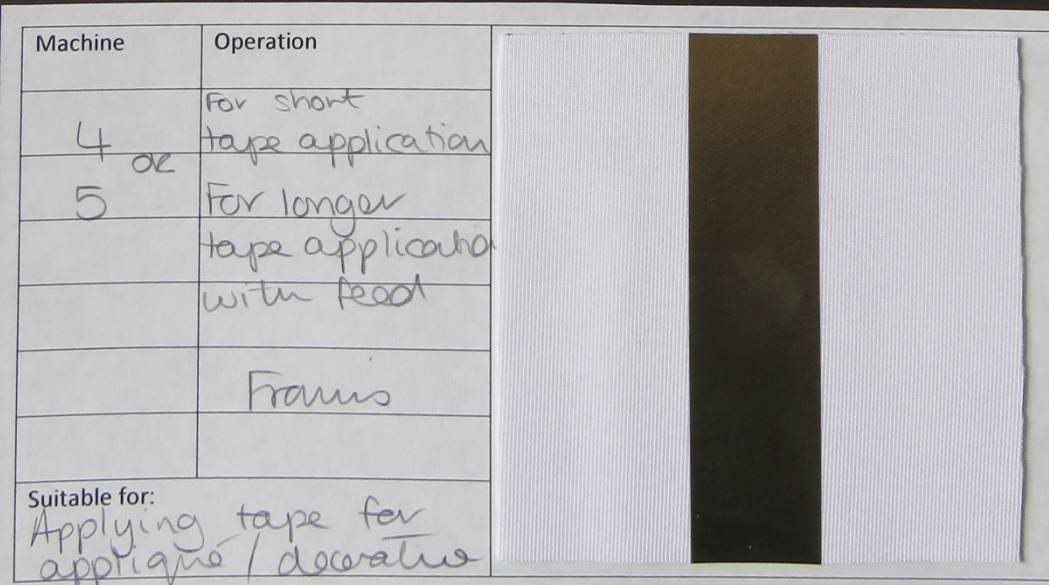 Machine Operation
For short
4 tape application
or
5 For longer
tape applicatio
with feed
Framis
Suitable for:
Applying tape for
appliqué / decorative